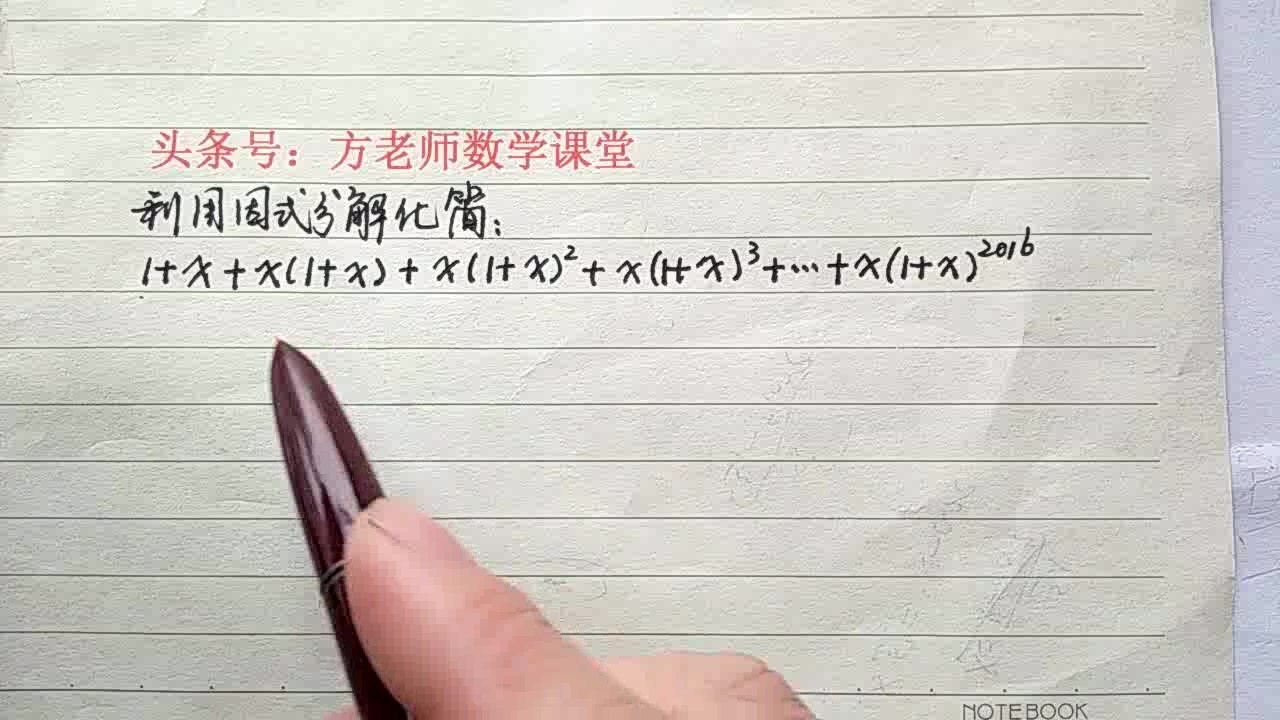 头条号：方老师数学课堂
利用因式分解化简：
1+x+x(1+x)+x(1+x)²+x(1+x)³+…+x(1+x)²⁰¹⁶
NOTEBOOK